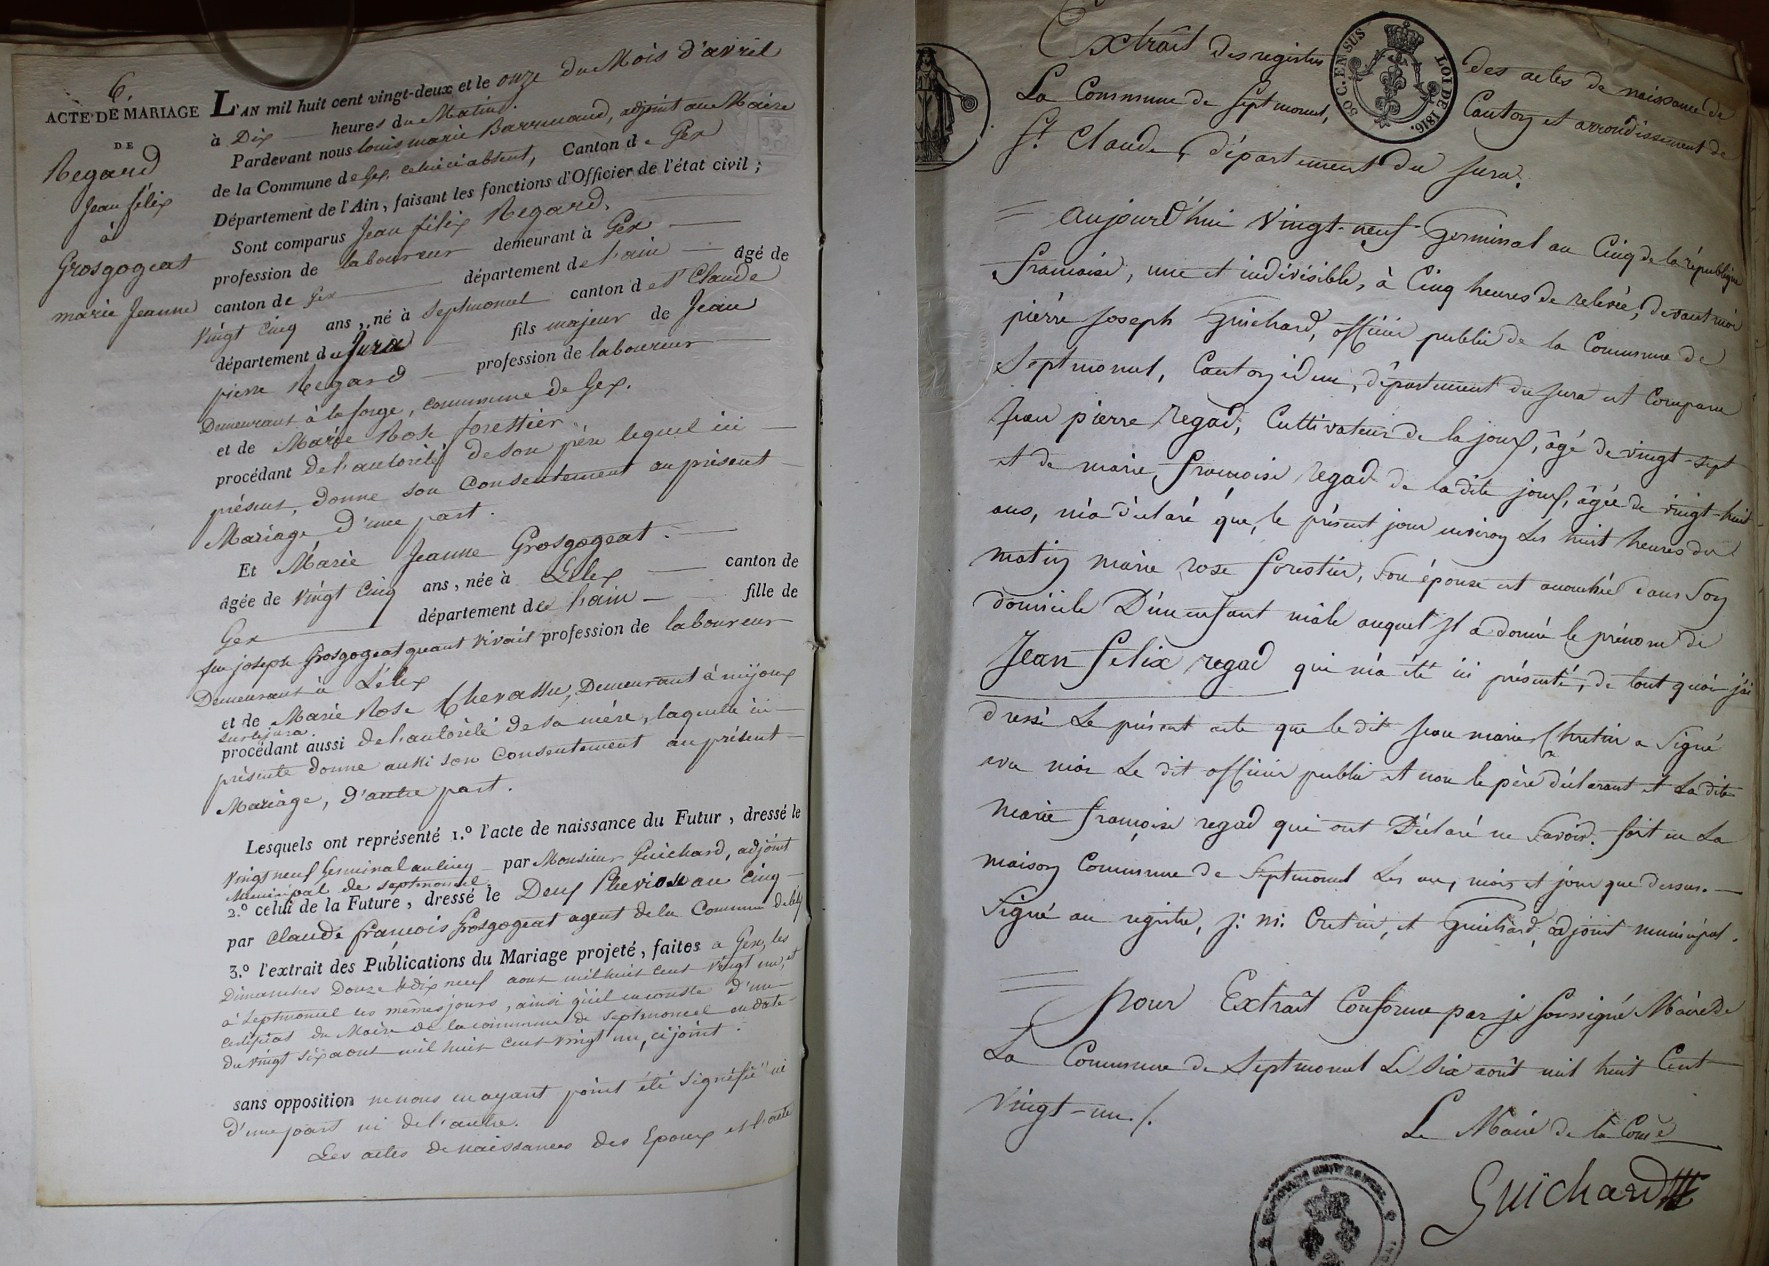 6.
ACTE DE MARIAGE
DE
Regard
Jean félix
à
Grosgogeat
marie Jeanne
L'AN mil huit cent vingt-deux et le onze du Mois d'avril
à Dix heures du Matin.
Pardevant nous louis marie Barrucand, adjoint au Maire
de la Commune de Gex, celui ci absent, Canton de Gex
Département de l'Ain, faisant les fonctions d'Officier de l'état civil ;
Sont comparus Jean félix Regard.
profession de laboureur demeurant à Gex
canton de Gex département de l'ain âgé de
vingt cinq ans, né à Septmoncel canton de St Claude
département du Jura fils majeur de Jean
pierre Regard profession de laboureur
Demeurant à la forge, commune de Gex.
et de Marie Rose forettier
procédant de l'autorité de son père lequel ici
présent, donne son Consentement au présent
Mariage, d'une part.
Et Marie Jeanne Grosgogeat.
âgée de vingt cinq ans, née à Lélex canton de
Gex département de l'ain fille de
feu joseph Grosgogeat quant vivait profession de laboureur
Demeurant à Lélex
et de Marie Rose Chevassu, Demeurant à mijoux
sur le jura.
procédant aussi de l'autorité de sa mère, laquelle ici
présente donne aussi son Consentement au présent
Mariage, d'autre part.
Lesquels ont représenté 1.º l'acte de naissance du Futur, dressé le
vingt neuf Germinal an cinq par Monsieur Guichard, adjoint
Municipal de septmoncel.
2.º celui de la Future, dressé le Deux Pluviose an cinq
par Claude francois Grosgogeat agent de la Commune de lélex
3.º l'extrait des Publications du Mariage projeté, faites à Gex, les
Dimanches Douze & dix neuf aout mil huit cent vingt un, et
à Septmoncel les mêmes jours, ainsi qu'il en conste d'un
certificat du Maire de la commune de Septmoncel en date
du vingt six aout mil huit cent vingt un, ci joint.
sans opposition ne nous en ayant point été signifié ni
d'une part ni de l'autre.
Les actes de naissances des Epoux et l'acte
Extrait des registres des actes de naissance de
La Commune de Septmoncel, Canton et arrondissement de
St Claude, département du Jura.
SOC. EN SUS
LOI DE 1816.
Aujourd'hui vingt-neuf Germinal an Cinq de la république
francaise, une et indivisible, à Cinq heures de relevée, devant moi
pierre Joseph Guichard, officier public de la Commune de
Septmoncel, Canton idem, département du jura est Comparu
Jean pierre Regad, Cultivateur de la joux, âgé de vingt-sept
et de marie françoise Regad de la dite joux, âgée de vingt-huit
ans, m'a déclaré que, le présent jour environ Les huit heures du
matin marie rose forestier, son épouse est accouchée dans Son
domicile D'un enfant mâle auquel Il a donné le prénom de
Jean felix regad qui m'a été ici présenté, de tout quoi j'ai
dressé Le présent acte que le dit Jean marie Chretin a Signé
avec moi Le dit officier public et non le père déclarant et La dite
marie françoise regad qui ont Déclaré ne Savoir. fait en La
maison Commune de Septmoncel Les an, mois et jour que dessus.
Signé au registre, j: m: Cretin, et Guichard, adjoint municipal.
Pour Extrait Conforme par je Soussigné Maire de
La Commune de Septmoncel Le Six août mil huit Cent
vingt-un./.
Le Maire de la Comᵉ
Guichard